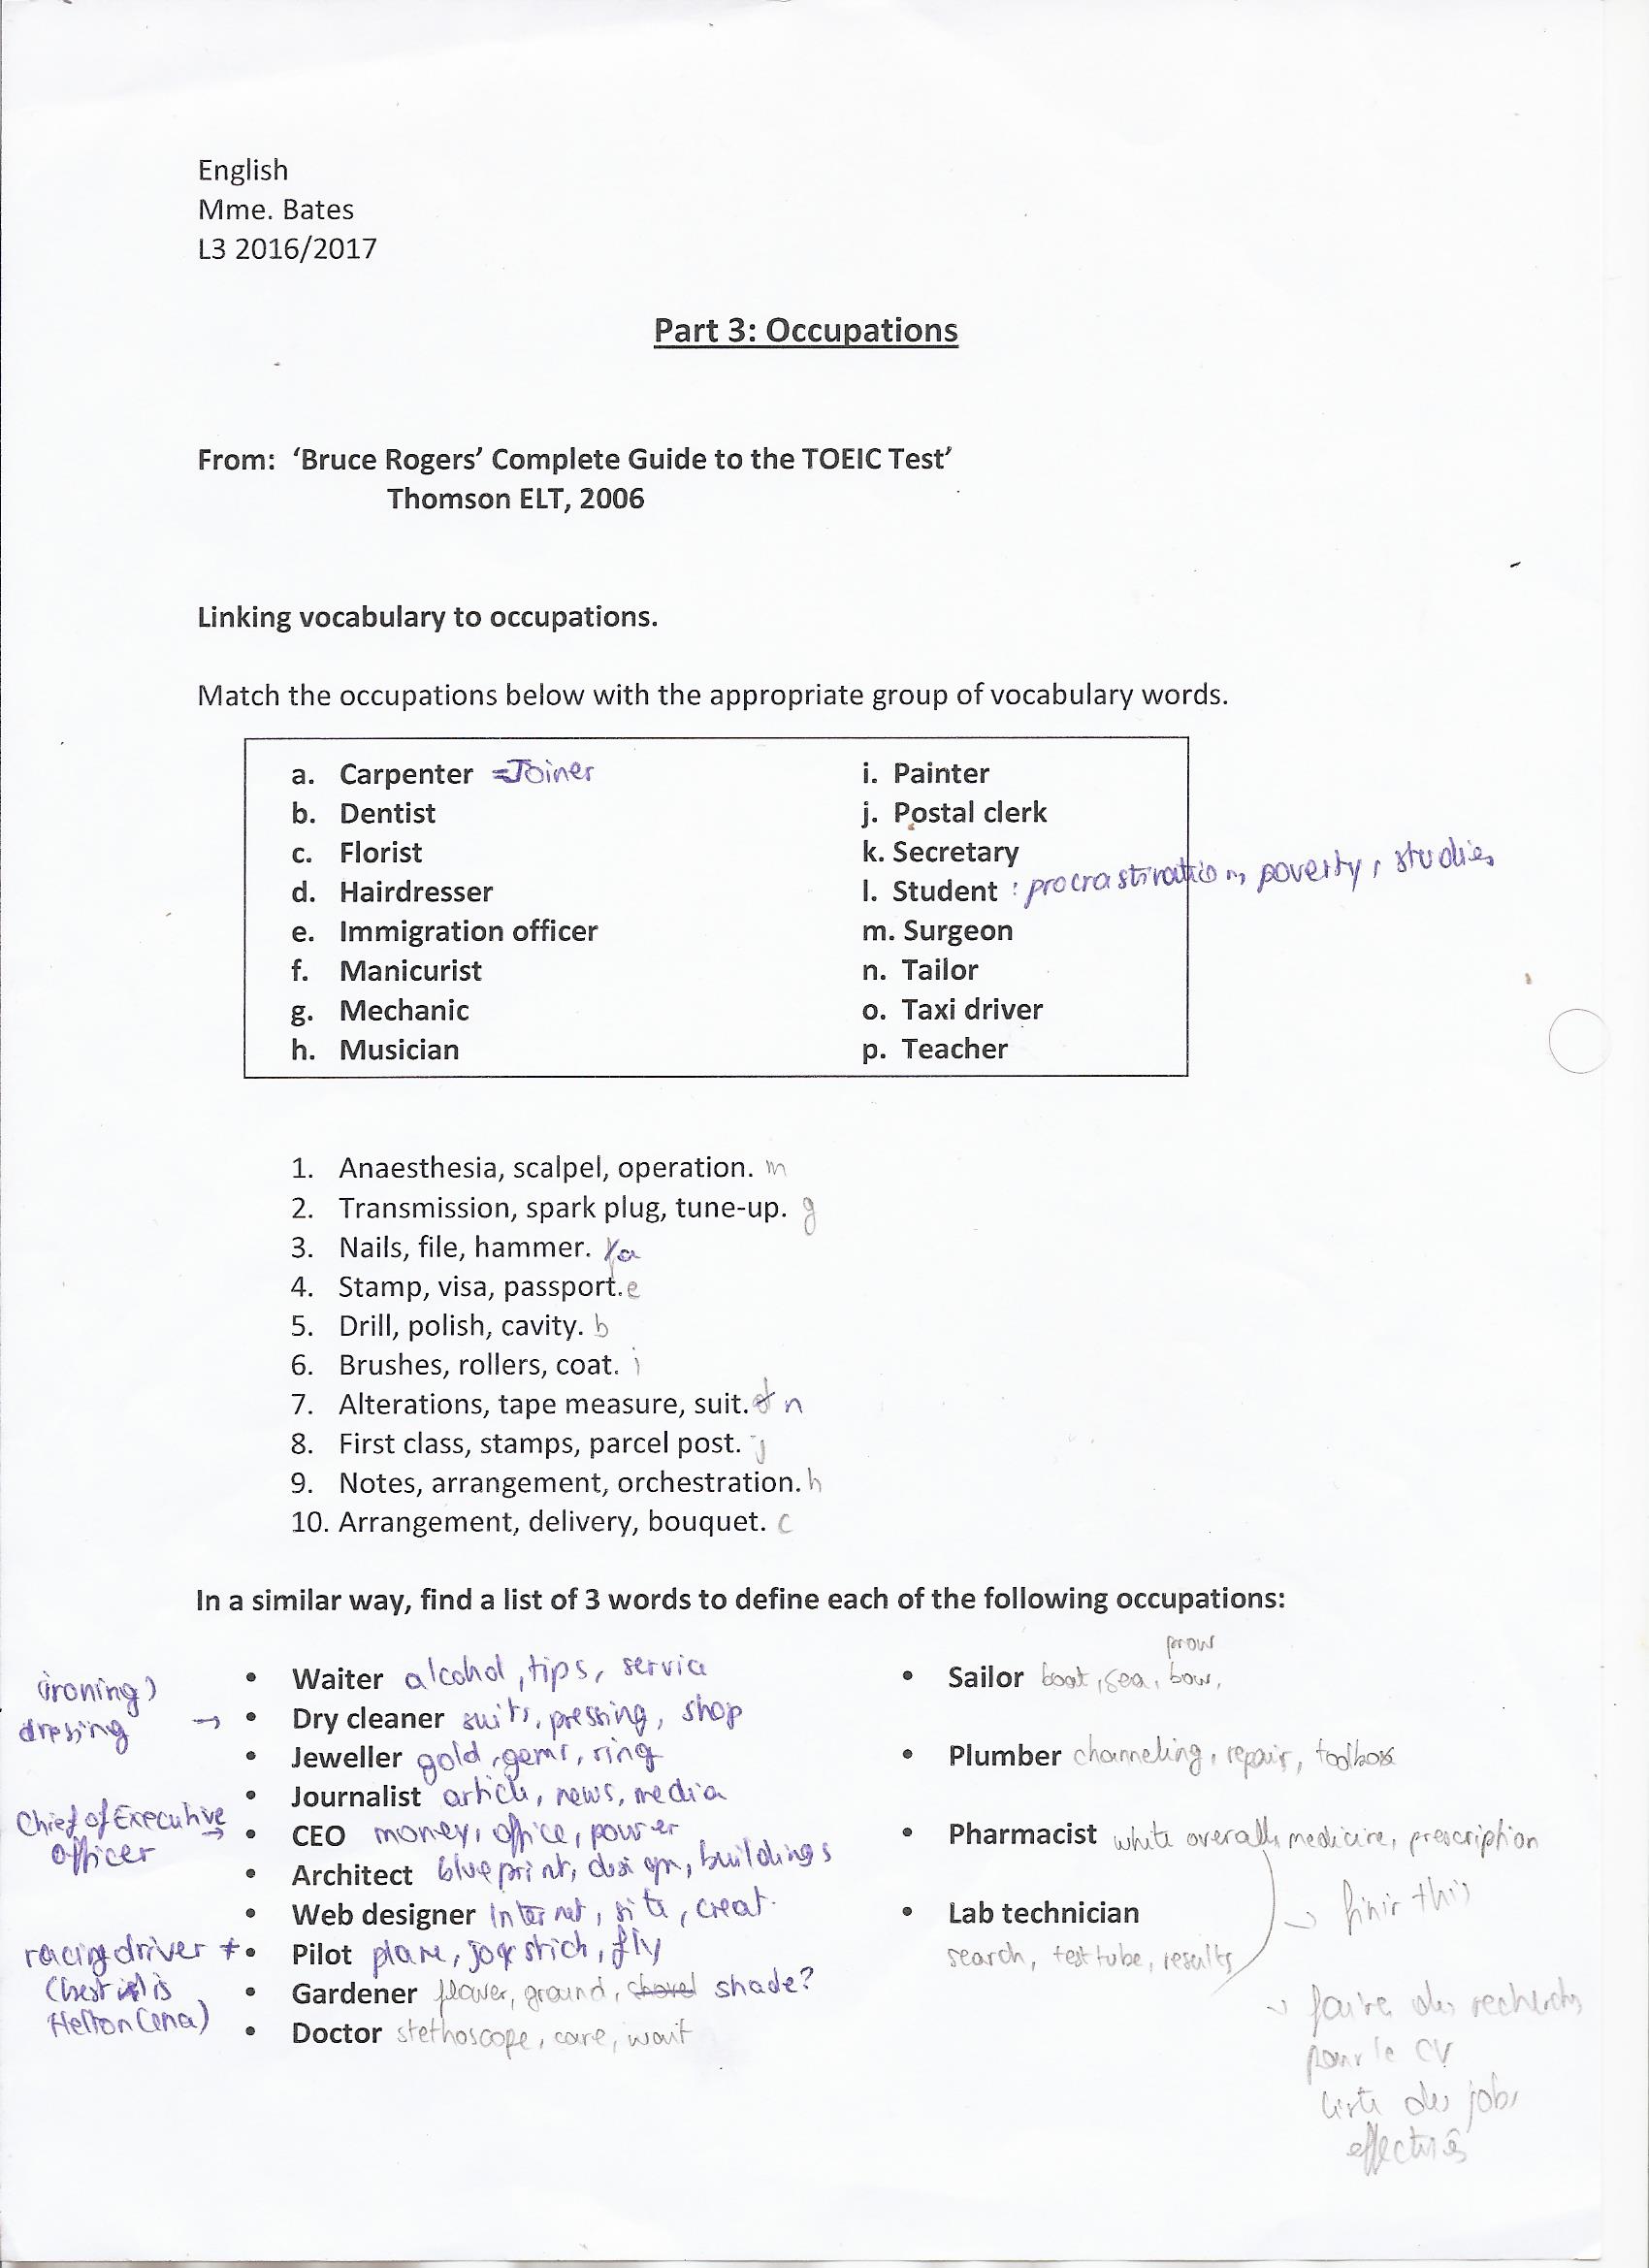 English
Mme. Bates
L3 2016/2017
Part 3: Occupations
From: ‘Bruce Rogers’ Complete Guide to the TOEIC Test’
Thomson ELT, 2006
Linking vocabulary to occupations.
Match the occupations below with the appropriate group of vocabulary words.
a. Carpenter =Joiner
b. Dentist
c. Florist
d. Hairdresser
e. Immigration officer
f. Manicurist
g. Mechanic
h. Musician
i. Painter
j. Postal clerk
k. Secretary
l. Student : procrastination, poverty, studies
m. Surgeon
n. Tailor
o. Taxi driver
p. Teacher
1. Anaesthesia, scalpel, operation. m
2. Transmission, spark plug, tune-up. g
3. Nails, file, hammer. a
4. Stamp, visa, passport. e
5. Drill, polish, cavity. b
6. Brushes, rollers, coat. i
7. Alterations, tape measure, suit. d n
8. First class, stamps, parcel post. j
9. Notes, arrangement, orchestration. h
10. Arrangement, delivery, bouquet. c
In a similar way, find a list of 3 words to define each of the following occupations:
• Waiter alcohol, tips, service
(ironing)
dressing →
• Dry cleaner suits, pressing, shop
• Jeweller gold, gems, ring
• Journalist article, news, media
Chief of Executive
Officer
• CEO money, office, power
• Architect blueprint, design, buildings
• Web designer Internet, site, creat.
racing driver ≠
• Pilot plane, joystich, fly
• Gardener flower, ground, shovel shade?
• Doctor stethoscope, care, wait
prow
• Sailor boat, sea, bow,
• Plumber channeling, repair, toolbox
• Pharmacist white overalls, medicine, prescription
→ finir this
• Lab technician
search, test tube, results
→ faire des recherches
pour le CV
liste des jobs
effectués